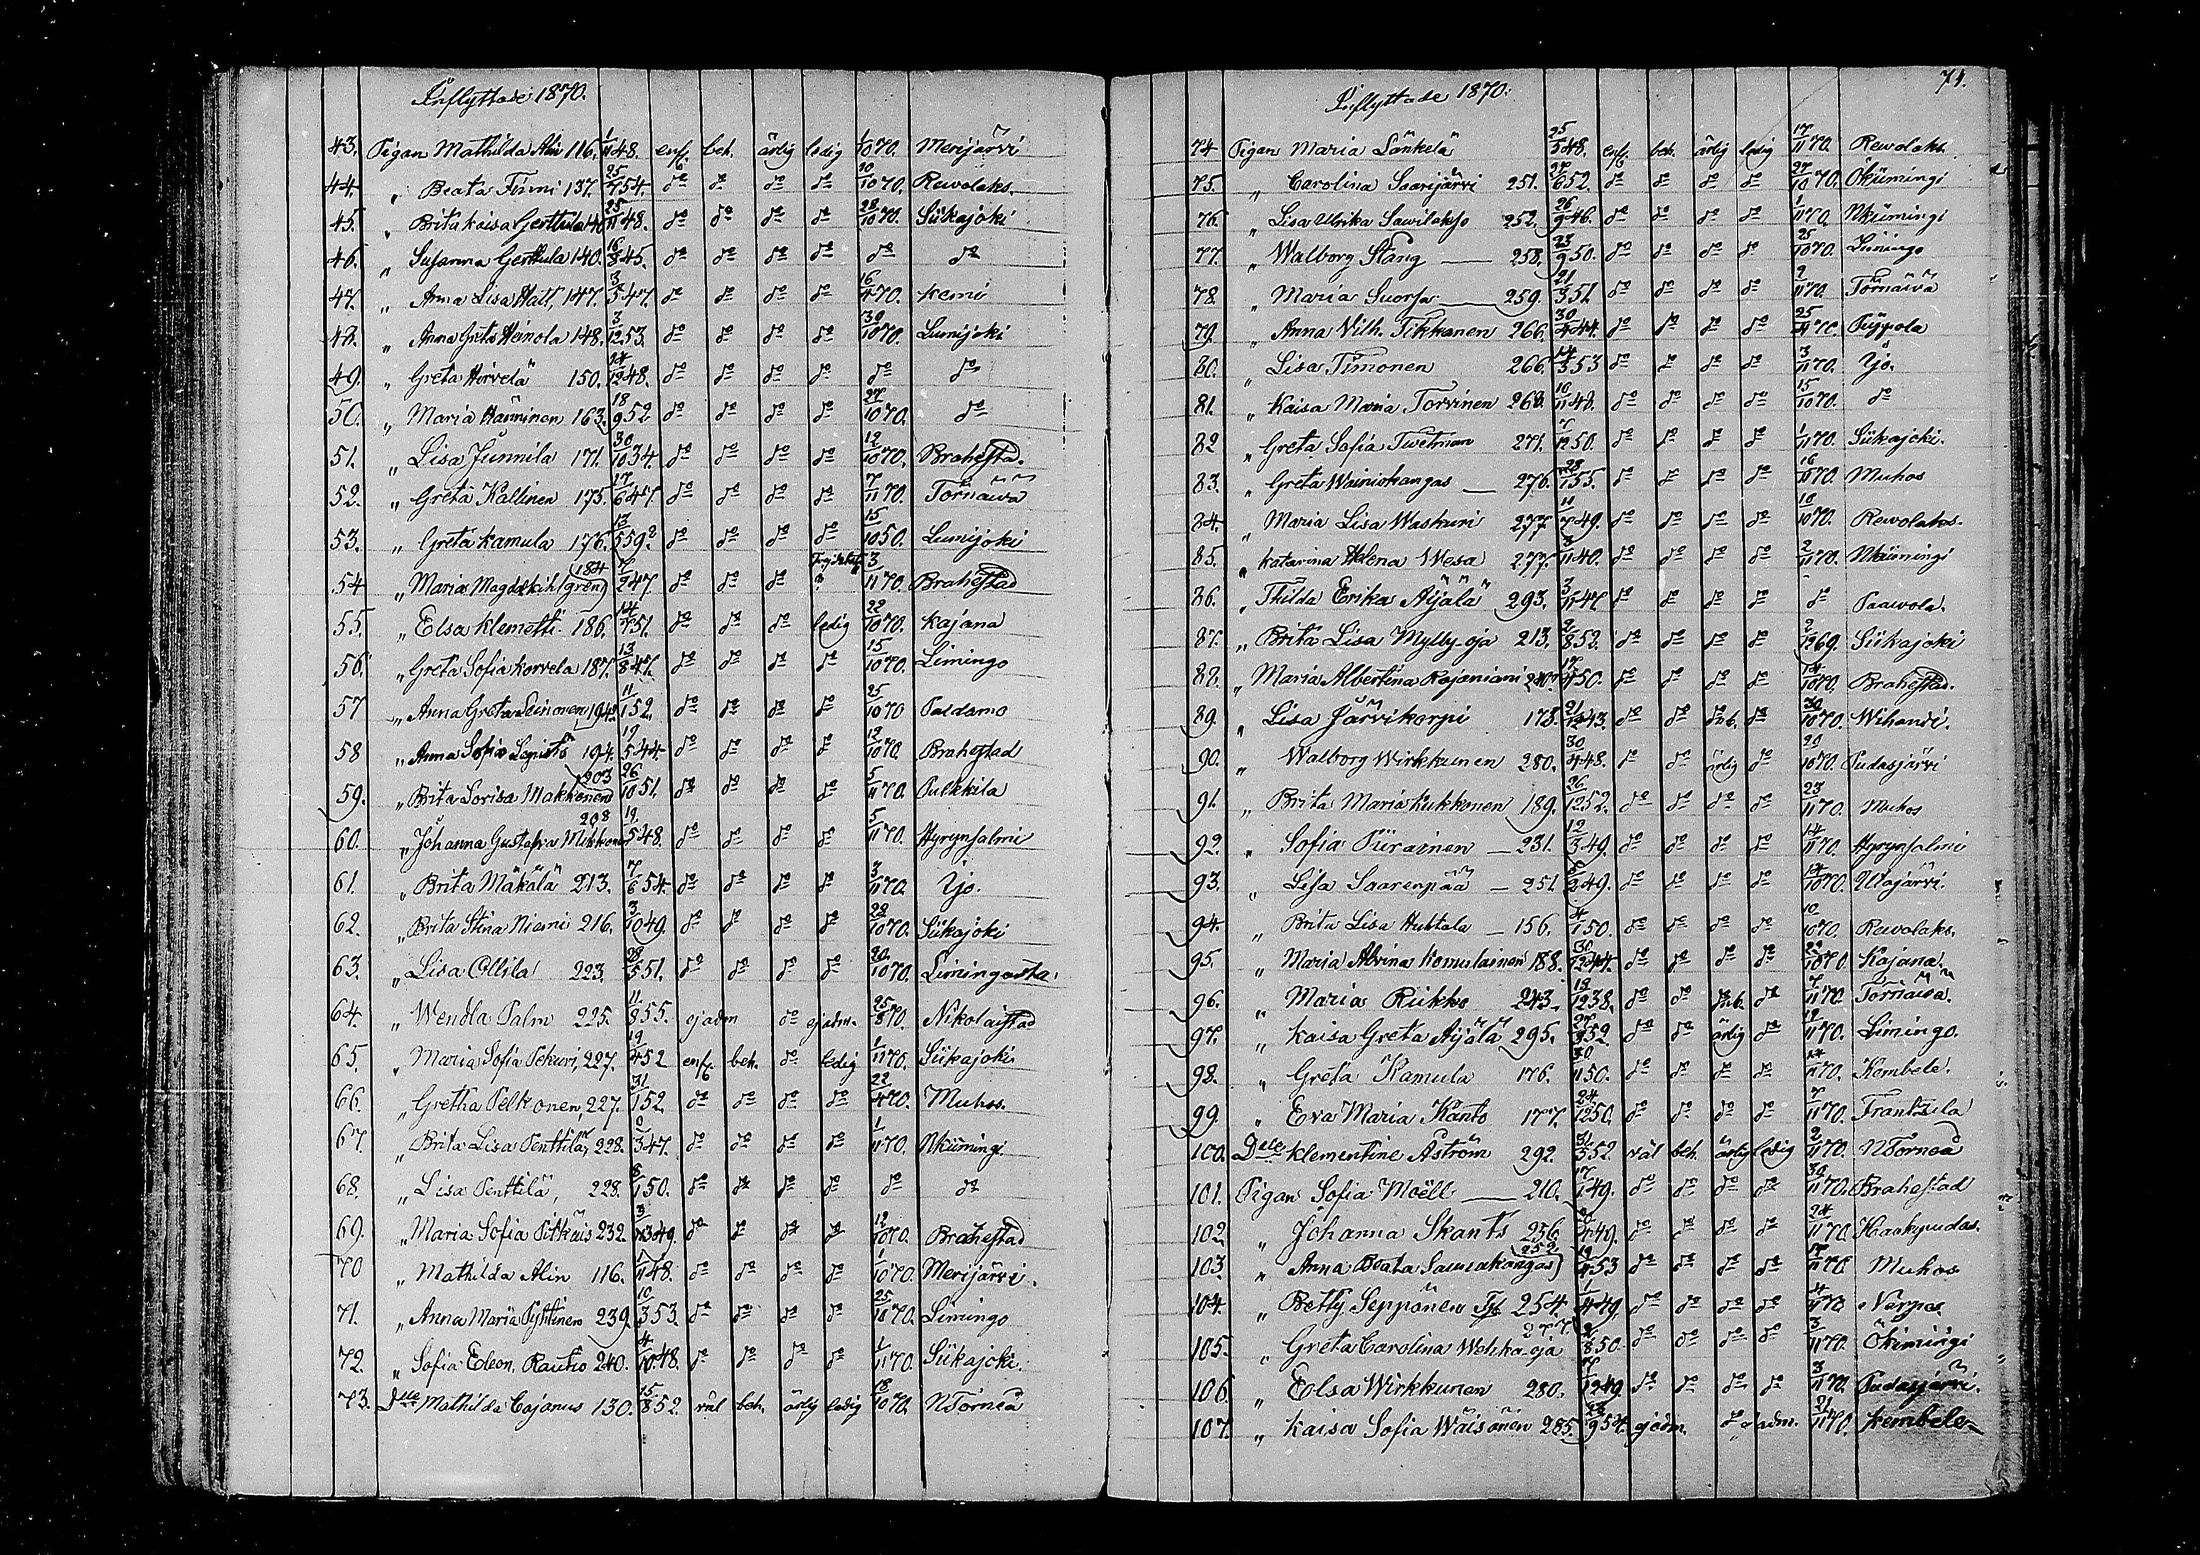 Inflyttade 1870.
43. Pigan Mathilda Alin 116. 1/11 48. enf. beh. ärlig ledig 1/10 70. Merijärvi
44. „ Beata Finni 137. 25/7 54. do do do do 20/10 70. Rewolaks.
45. „ Brita Kaisa Gerttula 140. 25/11 48. do do do do 28/10 70. Siikajoki
46. „ Susanna Gerttula 140. 16/8 45. do do do do do do
47. „ Anna Lisa Hall, 147. 3/5 47. do do do do 16/4 70. Kemi
48. „ Anna Greta Heinola 148. 3/12 53. do do do do 30/10 70. Lumijoki
49. „ Greta Hirvelä 150. 24/12 48. do do do do do do
50. „ Maria Hänninen 163. 18/9 52 do do do do 27/10 70. do
51. „ Lisa Junnila 171. 30/10 34. do do do do 12/10 70. Brahestad.
52. „ Greta Kallinen 175. 17/6 47 do do do do 7/11 70. Tornäwä
53. „ Greta Kamula 176. 13/5 59? do do do do 15/10 50. Lumijoki
54 „ Maria Magd. Kihlgren 184 7/2 47. do do do ? 3/11 70. Brahestad
55. „ Elsa Klemetti 186. 14/7 51. do do do ledig 22/10 70. Kajana
56. „ Greta Sofia Korvela 187. 13/8 47. do do do do 15/10 70. Limingo
57 „ Anna Greta Leinonen 194. 11/1 52. do do do do 25/10 70 Paldamo
58 „ Anna Sofia Lepistö 194. 19/5 44. do do do do 12/10 70. Brahestad
59. „ Brita Lovisa Makkonen 203 26/10 51. do do do do 5/11 70. Pulkkila
60. „ Johanna Gustafva Mikkonen 208 19/5 48. do do do do 5/11 70. Hyrynsalmi
61. „ Brita Mäkälä 213. 7/6 54. do do do do 3/11 70. Ijo.
62. „ Brita Stina Niemi 216. 3/10 49. do do do do 28/10 70. Siikajoki
63. „ Lisa Ollila 223. 28/5 51. do do do do 20/10 70. Limingo
64. „ Wendla Palm 225. 11/8 55. ej adm do ej adm. 25/8 70. Nikolaistad
65. „ Maria Sofia Pekuri, 227. 19/4 52 enf. beh. do ledig 1/11 70. Siikajoki
66. „ Gretha Pelkonen, 227. 31/1 52. do do do do 22/4 70. Muhos.
67. „ Brita Lisa Penttilä, 228. 2/3 47. do do do do 1/11 70. Nkiimingi.
68. „ Lisa Penttilä, 228. 8/1 50. do do do do do do
69. „ Maria Sofia Pitkäis 232. 3/ 49. do do do do 12/10 70. Brahestad
70 „ Mathilda Alin 116. 1/11 48. do do do do 1/10 70. Merijärvi.
71. „ Anna Maria Pyhtinen 239. 10/3 53. do do do do 25/10 70. Limingo
72. „ Sofia Eleon. Rautio 240. 4/10 48. do do do do 1/11 70. Siikajoki.
73. Dlle Mathilda Cajanus 130. 15/8 52. väl beh. ärlig ledig 18/10 70. NTorneå
74.
Inflyttade 1870.
74 Pigan Maria Länkelä 25/5 48. enf. beh. ärlig ledig 17/11 70. Rewolaks.
75. „ Carolina Saarijärvi 251. 27/6 52. do do do do 27/10 70. Ökiimingi
76. „ Lisa Ulrika Sawilakso 252. 26/9 46. do do do do 1/11 70. Nkiimingi
77. „ Walborg Stång — 258. 23/9 50. do do do do 25/10 70. Limingo
78. „ Maria Suorsa — 259. 21/3 51. do do do do 2/11 70. Tornäwä
79. „ Anna Wilh. Tikkanen 266. 30/4 44. do do do do 25/11 70. Piippola
80. „ Lisa Timonen 266. 14/3 53 do do do do 3/11 70. Ijo.
81. „ Kaisa Maria Torvinen 268. 10/11 48. do do do do 15/10 70. do
82 „ Greta Sofia Twetman 271. 7/12 50. do do do do 1/11 70. Siikajoki.
83. „ Greta Wainiokangas — 276. 28/1 55. do do do do 16/11 70. Muhos
84. „ Maria Lisa Waskuri 277 11/7 49. do do do do 10/10 70. Rewolaks.
85. „ Katarina Helena Wesa 277. 3/11 40. do do do do 2/11 70. Nkiimingi
86. „ Thilda Erika Äijälä 293. 3/11 47 do do do do do Paawola.
87. „ Brita Lisa Mylly oja 213. 2/8 53. do do do do 2/12 69. Siikajoki
88. „ Maria Albertina Rajaniemi 240. 17/4 50. do do do do 14/10 70. Brahestad.
89. „ Lisa Järvikorpi 173. 21/12 43. do do do 30/10 70. Wihandi.
90. „ Walborg Wirkkunen 280. 30/4 48. do do ärlig do 20/10 70. Pudasjärvi
91. „ Brita Maria Kukkonen 189. 26/12 52. do do do do 23/11 70. Muhos
92. „ Sofia Piirainen — 231. 12/3 49. do do do do 14/11 70. Hyrynsalmi
93. „ Lisa Saarenpää — 251. 6/2 49. do do do do 14/10 70. Ulajärvi.
94. „ Brita Lisa Huttala — 156. 4/1 50. do do do do 10/10 70. Rewolaks.
95. „ Maria Alvina Komulainen 188. 30/12 44. do do do do 29/10 70 Kajana.
96. „ Maria Rukko 243. 13/12 38. do do do 7/11 70. Tornäwä.
97. „ Kaisa Greta Äijälä 295. 27/8 52. do do ärlig do 12/11 70. Limingo.
98. „ Greta Kamula 176. 30/11 50. do do do do 14/11 70. Kembele.
99. „ Eva Maria Känts 177. 24/12 50. do do do do 7/11 70. Frantsila
100. Dlle Klementine Åström 292. 31/5 52. väl beh. ärlig ledig 2/11 70. NTorneå
101. Pigan Sofia Moëll — 210. 17/1 49. do do do do 30/11 70. Brahestad
102. „ Johanna Skants 256. 20/4 49. do do do do 24/11 70. Haukipudas.
103. „ Anna Beata Saunakangas 252 19/4 53 do do do do 17/11 70. Muhos
104. „ Betty Sepponen 254. 1/4 49. do do do do 4/11 70 Nerpes
105. „ Greta Carolina Wehkaoja 277. 2/8 50. do do do do 3/11 70. Ökimingi
106. „ Eolsa Wirkkunen 280. 7/12 49. do do do do 3/11 70. Pudasjärvi.
107. „ Kaisa Sofia Wäisänen 285. 28/9 54. ej adm. do ej adm. 21/11 70. Kembele